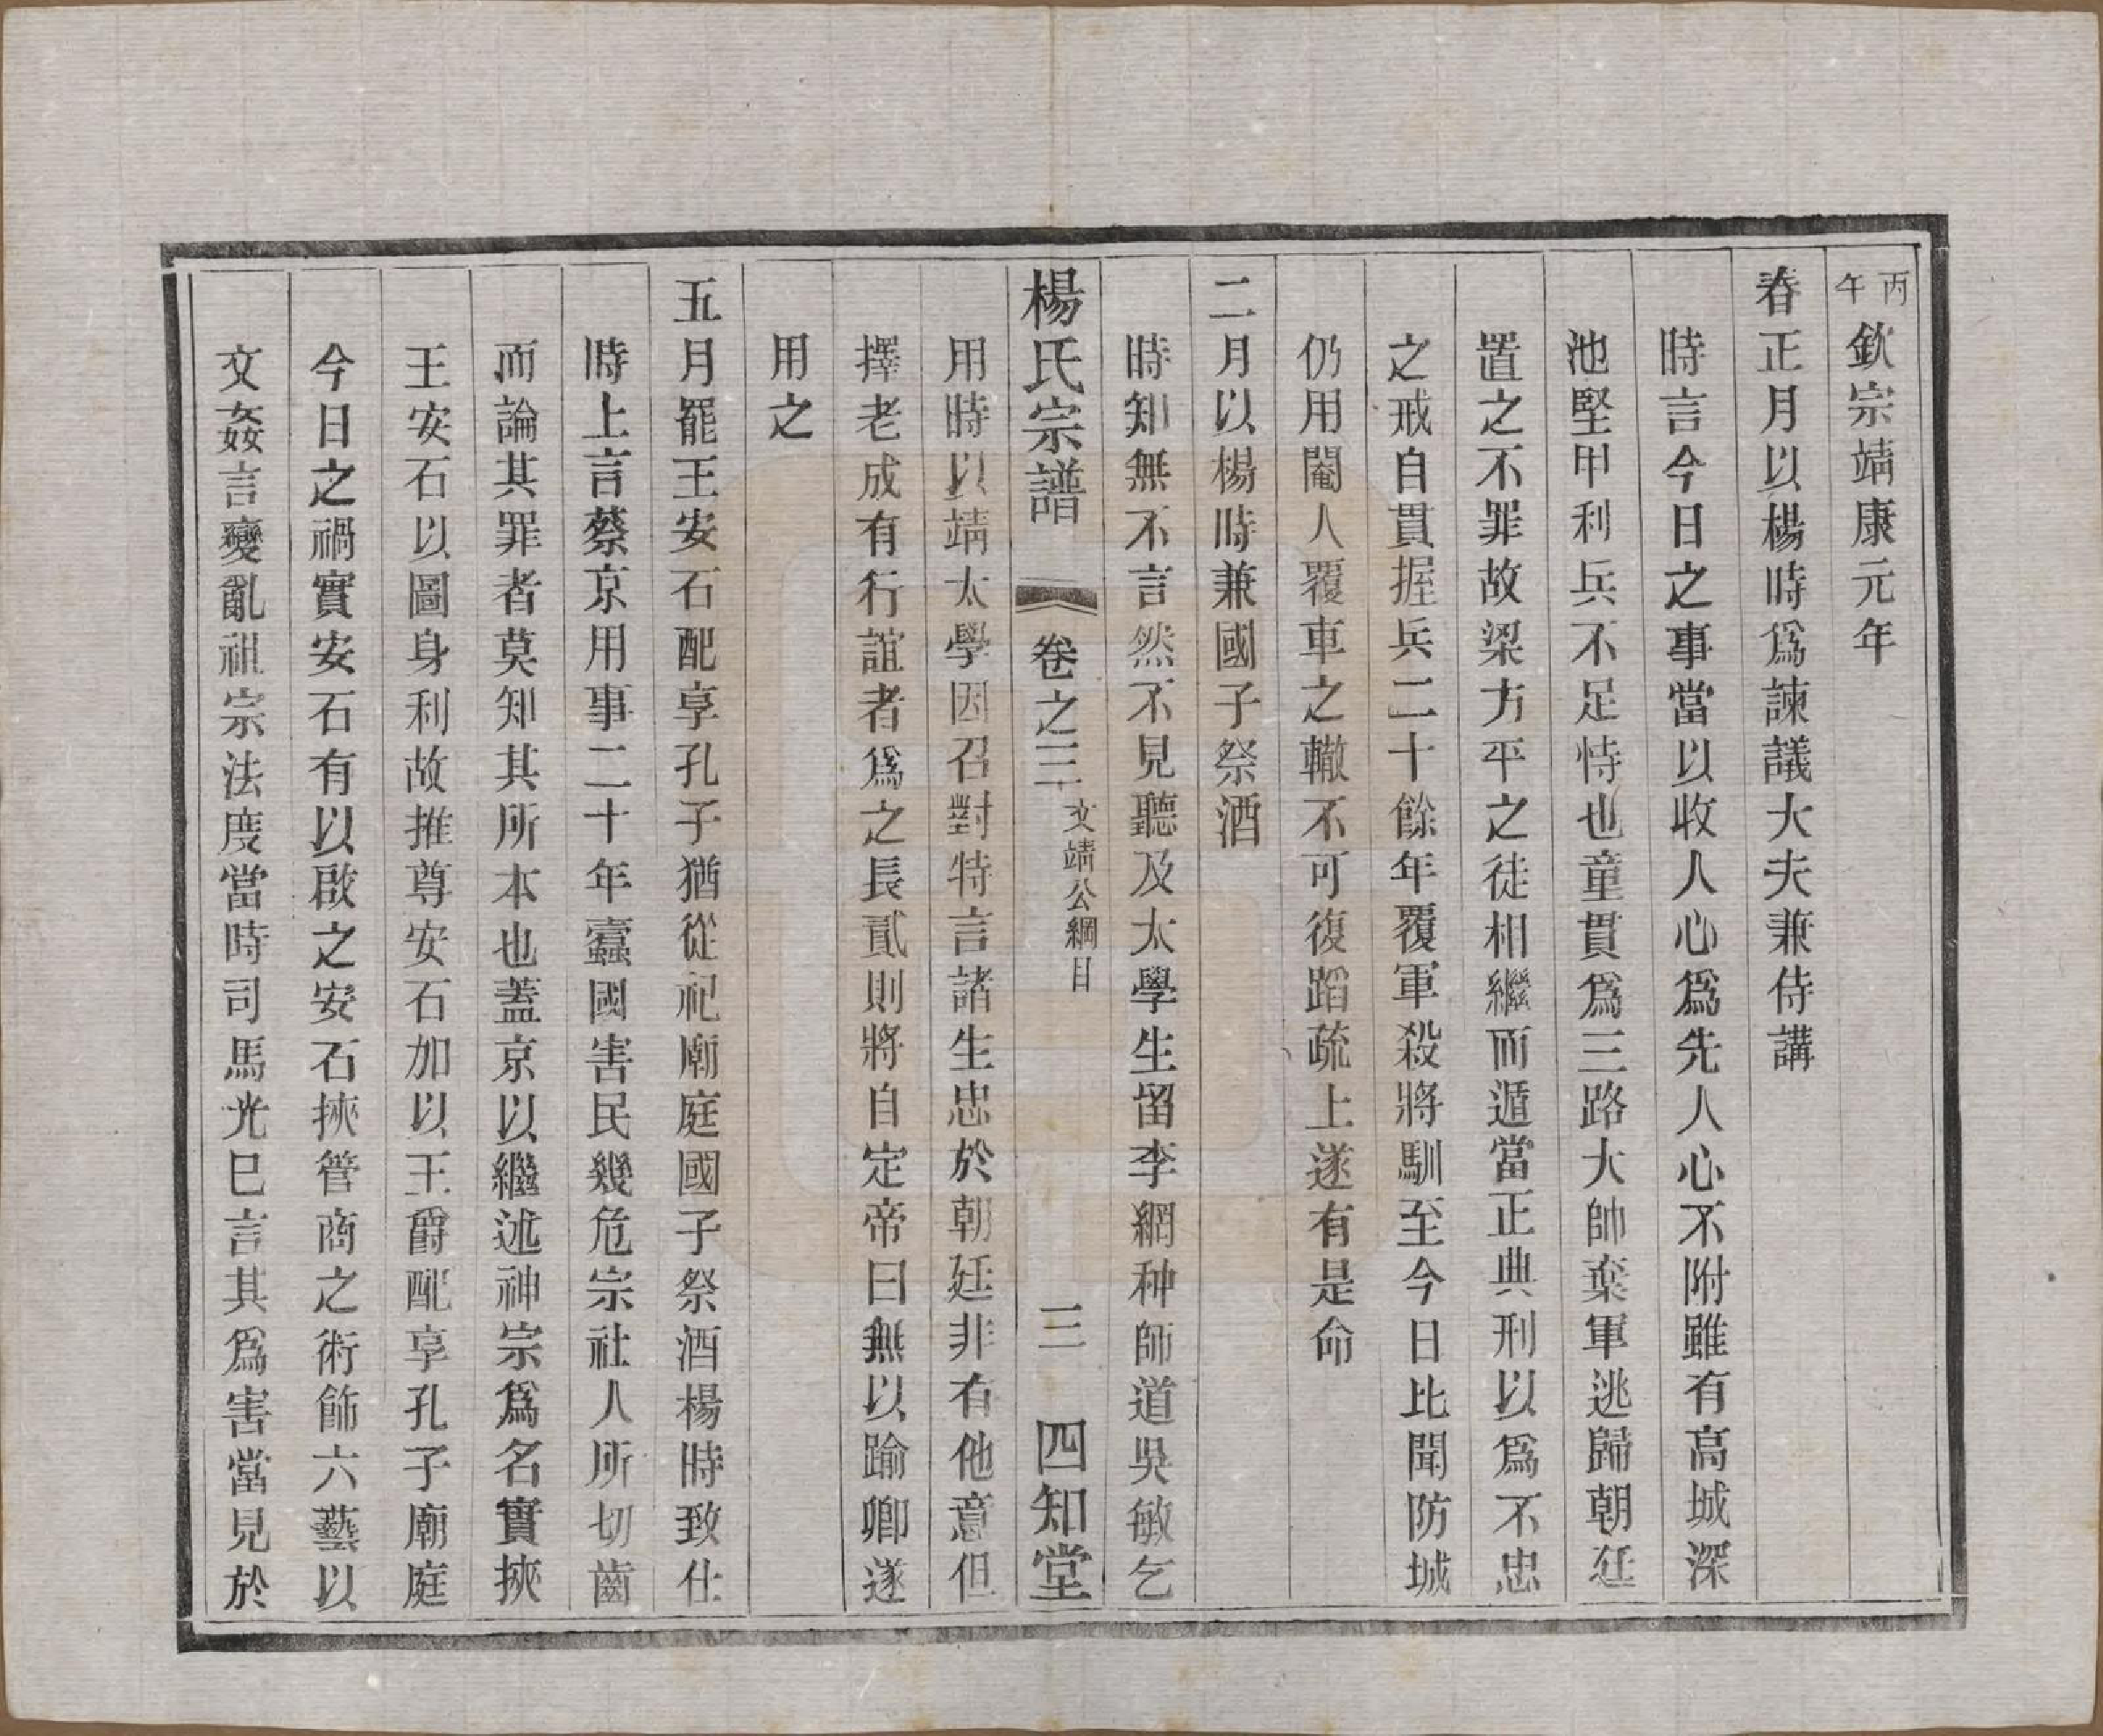 丙午欽宗靖康元年
春正月以楊時爲諫議大夫兼侍講
時言今日之事當以收人心爲先人心不附雖有高城深
池堅甲利兵不足恃也童貫爲三路大帥棄軍逃歸朝廷
置之不罪故梁方平之徒相繼而遁當正典刑以爲不忠
之戒自貫握兵二十餘年覆軍殺將馴至今日比聞防城
仍用閹人覆車之轍不可復蹈疏上遂有是命
二月以楊時兼國子祭酒
時知無不言然不見聽及太學生留李綱种師道吳敏乞
楊氏宗譜 卷之三 文靖公綱目 三 四知堂
用時以靖太學因召對特言諸生忠於朝廷非有他意但
擇老成有行誼者爲之長貳則將自定帝曰無以踰卿遂
用之
五月罷王安石配享孔子猶從祀廟庭國子祭酒楊時致仕
時上言蔡京用事二十年蠹國害民幾危宗社人所切齒
而論其罪者莫知其所本也蓋京以繼述神宗爲名實挾
王安石以圖身利故推尊安石加以王爵配享孔子廟庭
今日之禍實安石有以啟之安石挾管商之術飾六藝以
文姦言變亂祖宗法度當時司馬光已言其爲害當見於